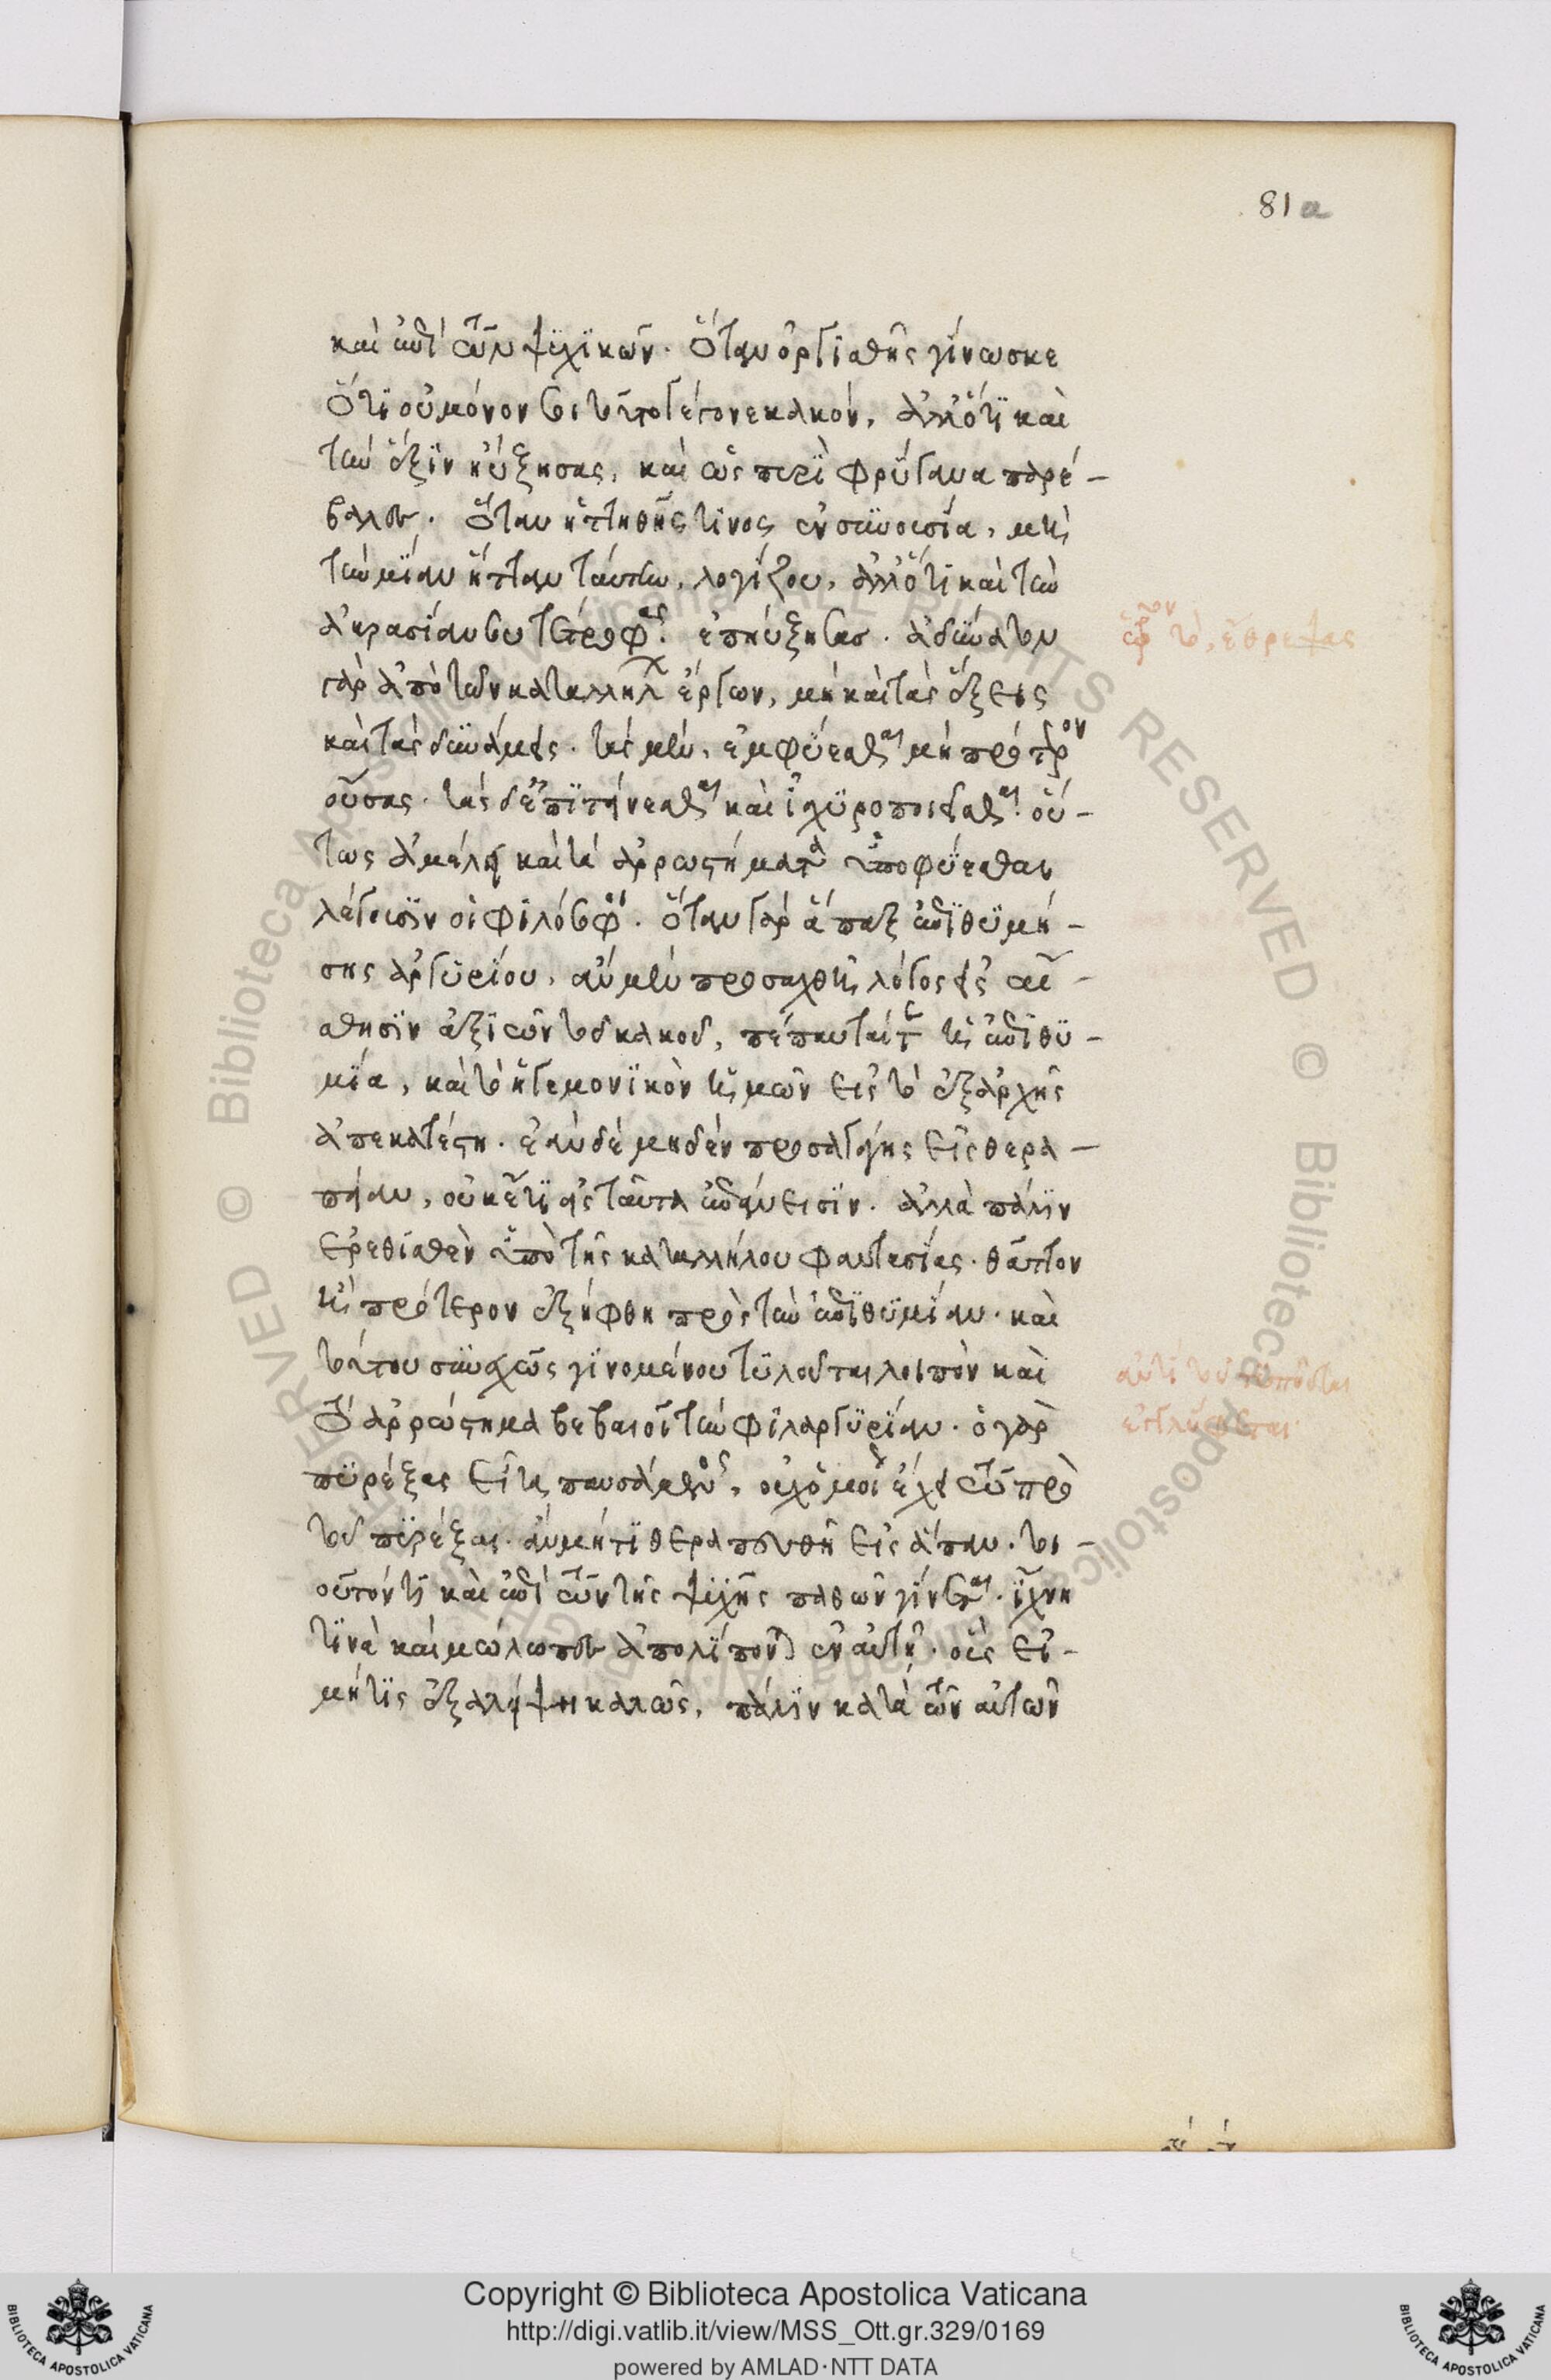 81a
καὶ ἐπὶ τῶν ψυχικῶν. Ὅταν ὀργισθῆς γίνωσκε
ὅτι οὐ μόνον σοι τοῦτο γέγονε κακόν, ἀλλ' ὅτι καὶ
τὴν ἕξιν ηὔξησας, καὶ ὡς πυρὶ φρύγανα παρέ-
βαλλες. Ὅταν ἡττηθῆς τινος ἐν συνουσία, μὴ
τὴν μίαν ἧτταν ταύτην λογίζου, ἀλλ' ὅτι καὶ τὴν
ἀκρασίαν σου τέτροφας ἐπηύξησας. ἀδύνατον
γὰρ ἀπὸ τῶν καταλλήλ ἔργων, μὴ καὶ τὰς ἕξεις
καὶ τὰς δυνάμεις. τὰς μὲν, ἐμφύεσθαι μὴ πρότερον
οὔσας. τὰς δ' ἐπιτείνεσθαι καὶ ἰσχυροποιεῖσθαι. οὕ-
τως ἀμέλει καὶ τὰ ἀρρωστήματα ὑποφύεσθαι
λέγουσιν οἱ φιλόσοφοι. ὅταν γὰρ ἅπαξ ἐπιθυμή-
σης ἀργυρίου, ἂν μὲν προσαχθῆ λόγος εἰς αἴ-
σθησιν ἄξων τοῦ κακοῦ, πέπαυταί τε ἡ ἐπιθυ-
μία, καὶ τὸ ἡγεμονικὸν ἡμῶν εἰς τὸ ἐξαρχῆς
ἀπεκατέστη. ἐὰν δὲ μηδὲν προσαγάγης εἰς θερα-
πείαν, οὐκέτι εἰς ταῦτα ἐπάνεισιν. ἀλλὰ πάλιν
ἐρεθισθὲν ὑπὸ τῆς καταλλήλου φαντασίας. θᾶττον
ἢ πρότερον ἐξήφθη πρὸς τὴν ἐπιθυμίαν. καὶ
τούτου συνεχῶς γινομένου τυλοῦται λοιπὸν καὶ
τὸ ἀρρώστημα βεβαιοῖ τὴν φιλαργυρίαν. ὁ γὰρ
πυρέξας εἶτα παυσάμενος, οὐχ ὁμοίως ἔχει τῶ πρὸ
τοῦ πυρέξαι. ἂν μήτι θεραπευθῆ εἰς ἅπαν. τοι-
οῦτόν τι καὶ ἐπὶ τῶν τῆς ψυχῆς παθῶν γίνεται. ἴχνη
τινὰ καὶ μώλωπες ἀπολείπονται ἐν αὐτῆ. οὓς εἰ-
μήτις ἐξαλείψη καλῶς, πάλιν κατὰ τῶν αὐτῶν
τὸ, ἔθρεψας
ἀντὶ τοῦ
Copyright © Biblioteca Apostolica Vaticana
http://digi.vatlib.it/view/MSS_Ott.gr.329/0169
powered by AMLAD·NTT DATA